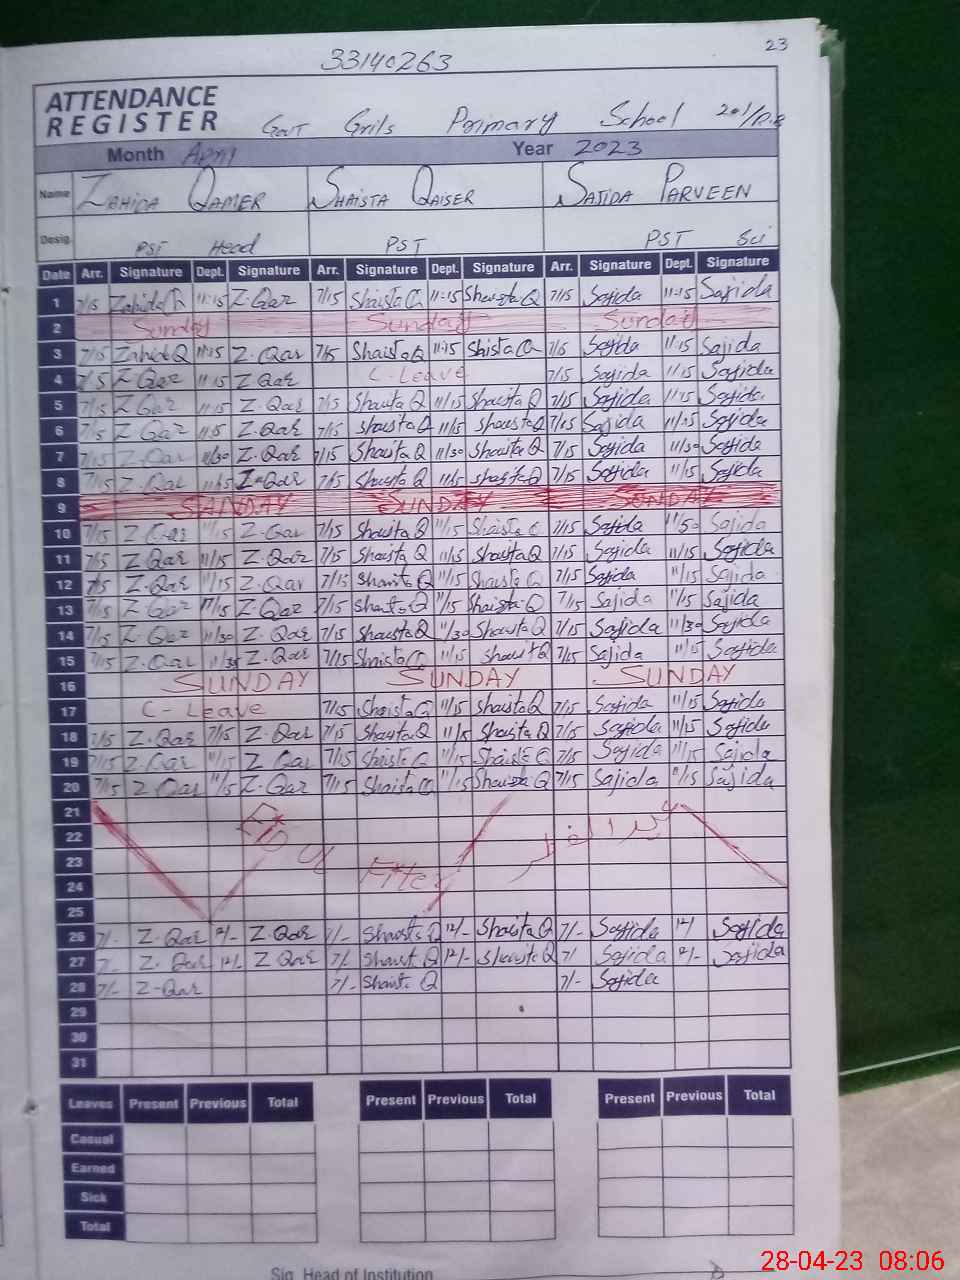 23
33140263
ATTENDANCE
REGISTER Govt Grils Primary School 201/R.B
Month April Year 2023
Name ZAHIDA QAMER SHAISTA QAISER SAJIDA PARVEEN
Desig. PST Head PST PST Sci
Date Arr. Signature Dept. Signature Arr. Signature Dept. Signature Arr. Signature Dept. Signature
1 7/15 Zahida Q 11:15 Z.Qar 7/15 Shaista Q 11:15 Shaista Q 7/15 Sajida 11:15 Sajida
2 Sunday Sunday Sunday
3 7/15 Zahid Q 11:15 Z.Qar 7/15 Shaista Q 11:15 Shista Q 7/15 Sajida 11:15 Sajida
4 7/15 Z Qar 11:15 Z Qar C-Leave 7/15 Sajida 11:15 Sajida
5 7/15 Z Qar 11:15 Z.Qar 7/15 Shaista Q 11/15 Shaista Q 7/15 Sajida 11:15 Sajida
6 7/15 Z Qar 11:15 Z.Qar 7/15 Shaista Q 11/15 Shaista Q 7/15 Sajida 11/15 Sajida
7 7/15 Z Qar 11/30 Z.Qar 7/15 Shaista Q 11/30 Shaista Q 7/15 Sajida 11/30 Sajida
8 7/15 Z.Qar 11/15 Z.Qar 7/15 Shaista Q 11/15 Shaista Q 7/15 Sajida 11/15 Sajida
9 SANDAY SUNDAY SUNDAY
10 7/15 Z Qar 11/15 Z.Qar 7/15 Shaista Q 11/15 Shaista Q 7/15 Sajida Sajida
11 7/15 Z Qar 11/15 Z.Qar 7/15 Shaista Q 11/15 Shaista Q 7/15 Sajida 11/15 Sajida
12 7/15 Z.Qar 11/15 Z.Qar 7/15 Shaista Q 11/15 Shaista Q 7/15 Sajida 11/15 Sajida
13 7/15 Z Qar 11/15 Z.Qar 7/15 Shaista Q 11/15 Shaista Q 7/15 Sajida 11/15 Sajida
14 7/15 Z.Qar 11/30 Z.Qar 7/15 Shaista Q 11/30 Shaista Q 7/15 Sajida 11/30 Sajida
15 7/15 Z.Qar 11/30 Z.Qar 7/15 Shaista Q 11/15 Shaista Q 7/15 Sajida 11/15 Sajida
16 SUNDAY SUNDAY SUNDAY
17 C-Leave 7/15 Shaista Q 11/15 Shaista Q 7/15 Sajida 11/15 Sajida
18 7/15 Z.Qar 7/15 Z.Qar 7/15 Shaista Q 11/15 Shaista Q 7/15 Sajida 11/15 Sajida
19 7/15 Z.Qar 11/15 Z Qar 7/15 Shaista Q 11/15 Shaista Q 7/15 Sajida 11/15 Sajida
20 7/15 Z Qar 11/15 Z.Qar 7/15 Shaista Q 11/15 Shaista Q 7/15 Sajida 11/15 Sajida
21
22 Eid ul Fiter عید الفطر
23
24
25
26 7/- Z.Qar 12/- Z.Qar 7/- Shaista Q 12/- Shaista Q 7/- Sajida 12/ Sajida
27 7/- Z.Qar 12/- Z Qar 7/ Shaist Q 12/- Shaista Q 7/ Sajida 12/- Sajida
28 7/- Z-Qar 7/- Shaist Q 7/- Sajida
29
30
31
Leaves Present Previous Total Present Previous Total Present Previous Total
Casual
Earned
Sick
Total
Sig. Head of Institution
28-04-23 08:06